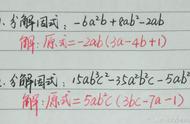 1.分解因式：-6a²b+8ab²-2ab
解：原式=-2ab(3a-4b+1)
2.分解因式：15ab³c²-35a²b²c-5ab²c
解：原式=5ab²c(3bc-7a-1)